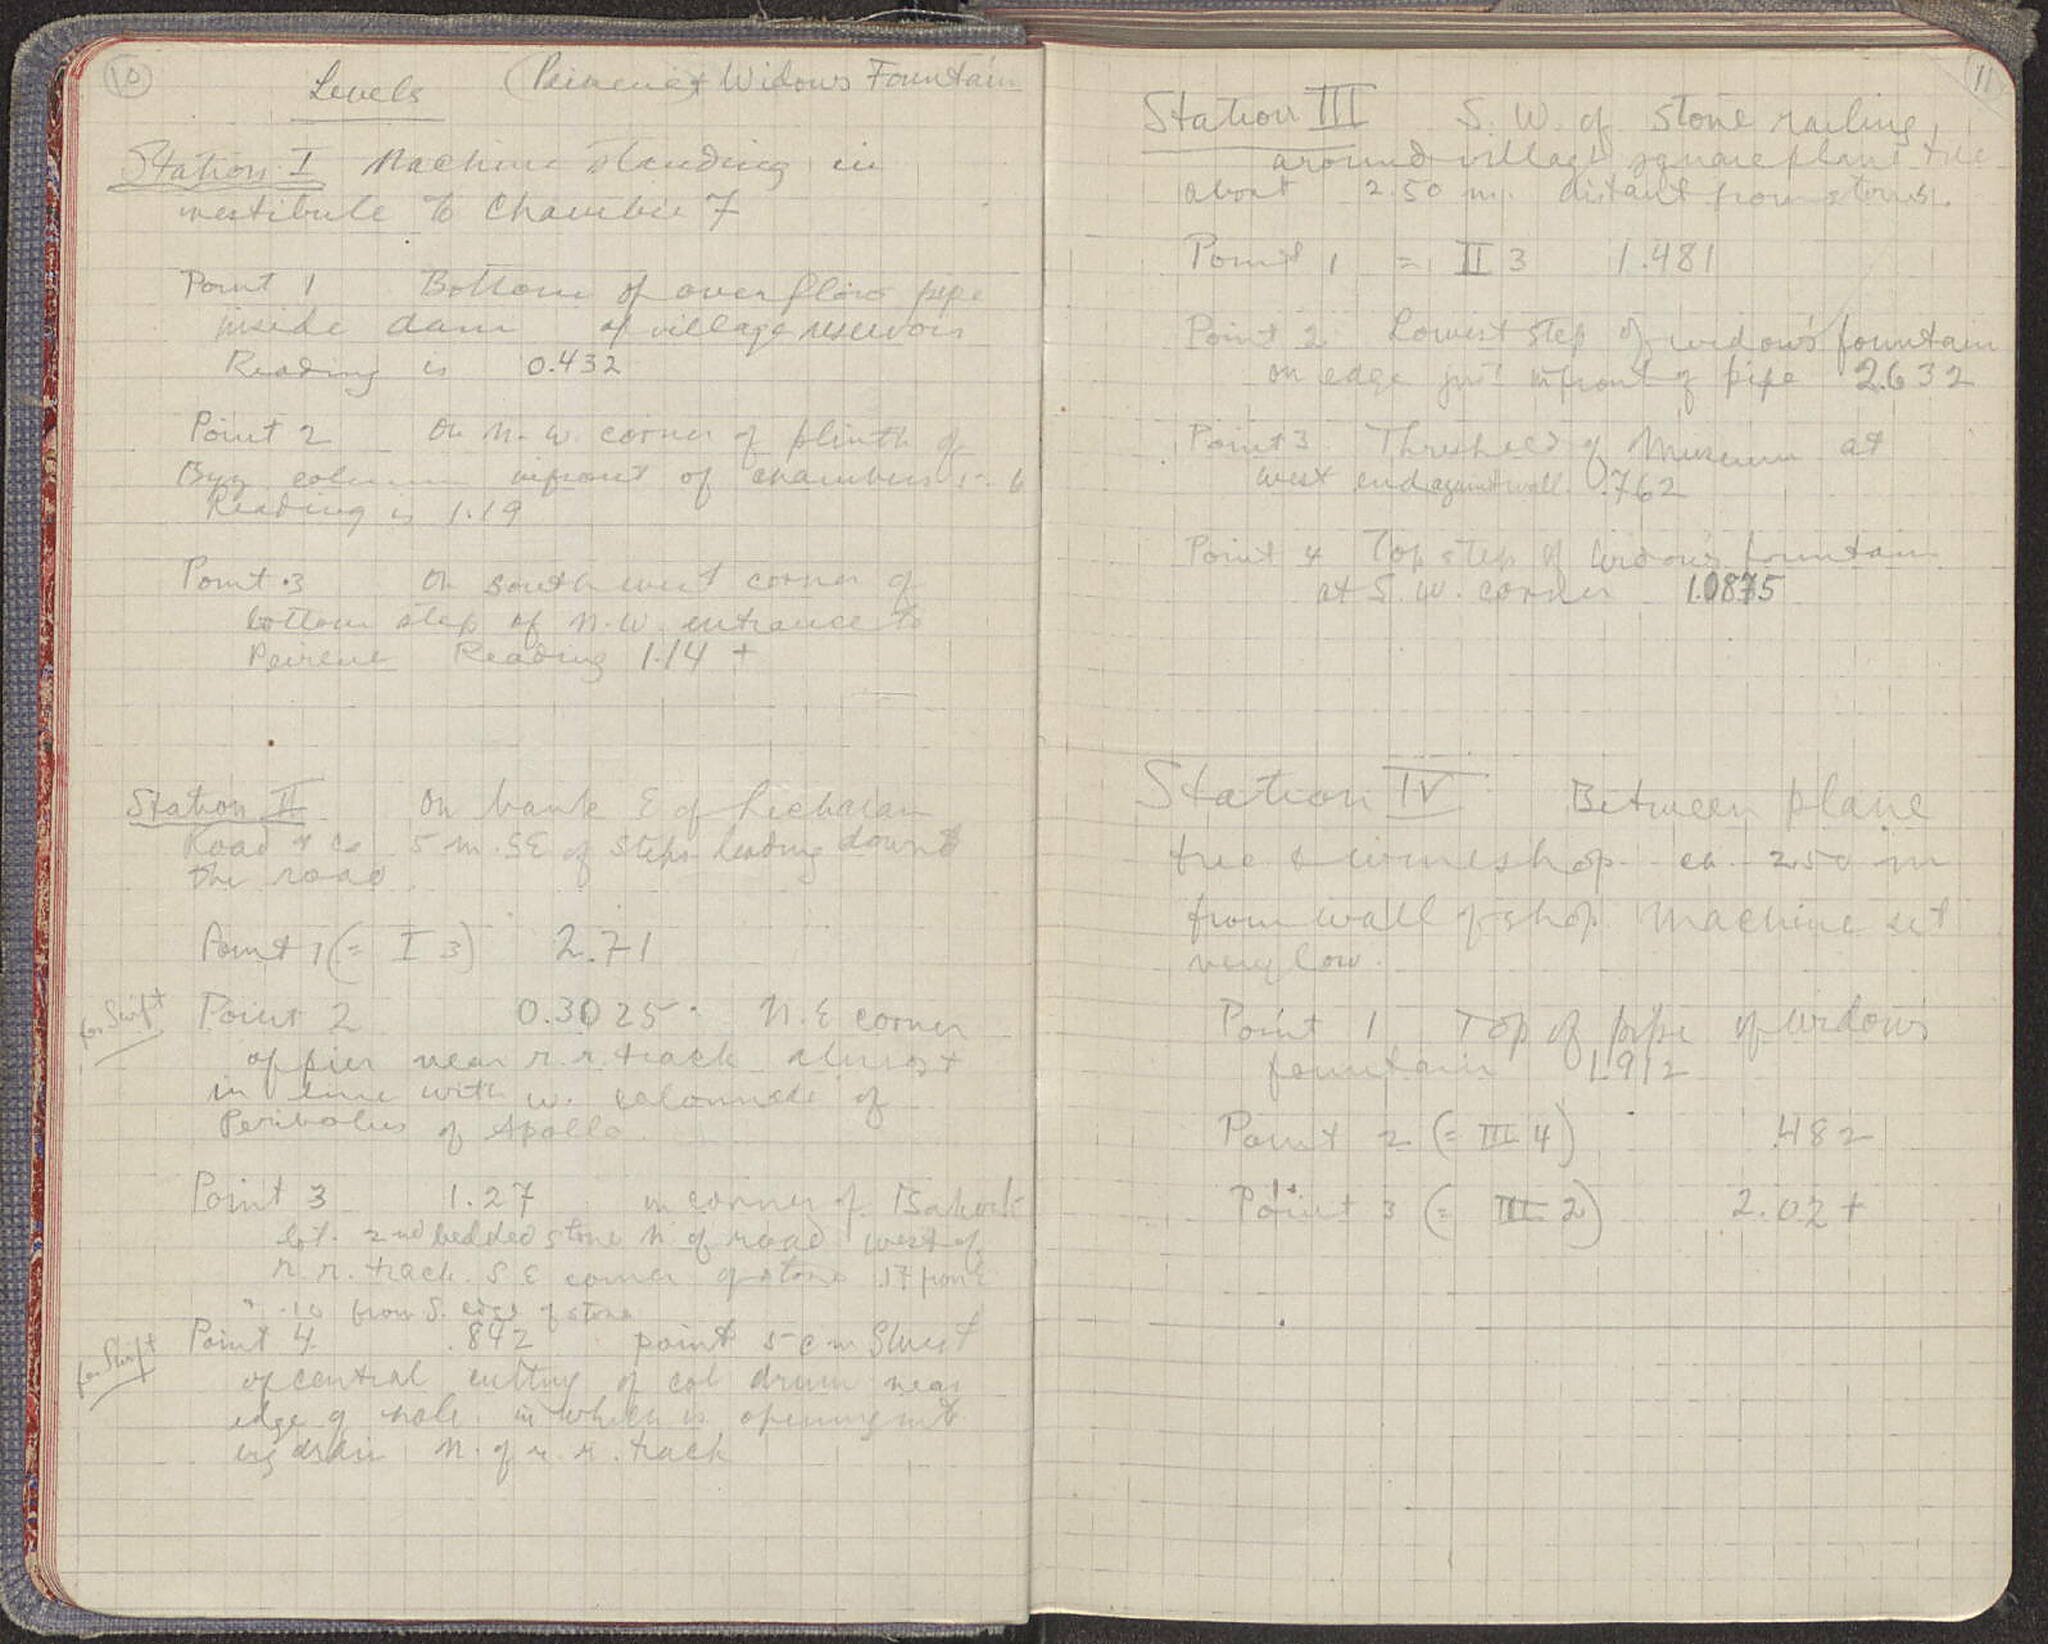 10
Levels (Peirene & Widows Fountain
Station I Machine standing in
vestibule to Chamber 7
Point 1 Bottom of overflow pipe
inside dam of village reservoir
Reading is 0.432
Point 2 On N.W. corner of plinth of
Byz column infront of chambers 5-6
Reading is 1.19
Point 3 On south west corner of
bottom step of N.W. entrance to
Peirene Reading 1.14 +
Station II On bank E of Lechaian
Road & ca 5 m. SE of steps leading down to
the road
Point 1 (= I 3) 2.71
for Swift
Point 2 0.3025 N.E corner
of pier near r.r. track almost
in line with w. colonnade of
Peribolus of Apollo.
Point 3 1.27 in corner of
lot. 2nd bedded stone N of road west of
r.r. track. S E corner of stone .17 from E
" .10 from S. edge of stone
for Swift
Point 4 .842 point 5 cm SWest
of central cutting of drum near
edge of hole in which is opening into
big drain N. of r.r. track
11
Station III S.W. of stone railing
around village square plane tree
about 2.50 m. distant from stones.
Point 1 = II 3 1.481
Point 2 Lowest step of widow's fountain
on edge just infront of pipe 2.632
Point 3 Threshold of Museum at
west end against wall 0.762
Point 4 Top step of widow's fountain
at S.W. corner 1.0875
Station IV Between plane
tree & wineshop ca. 2.50 m
from wall of shop. Machine set
very low.
Point 1 Top of pipe of widows
fountain 1.912
Point 2 (= III 4) .482
Point 3 (= III 2) 2.02 +